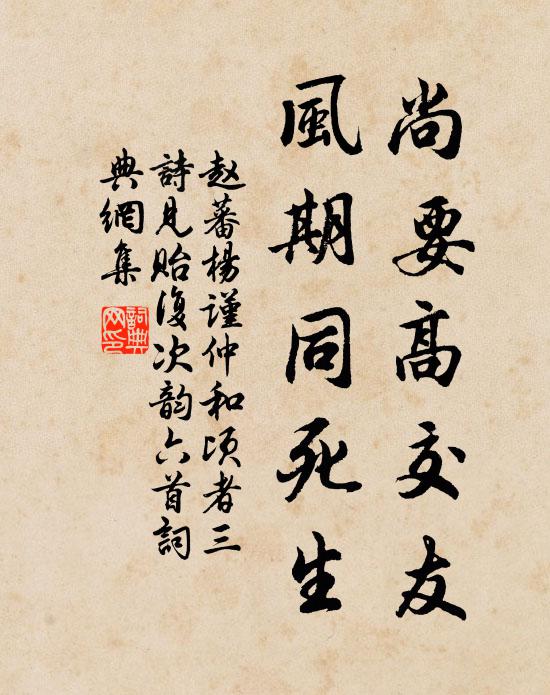 尚要高交友
風期同死生
赵蕃楊謹仲和頃者三
詩見貽復次韵六首詞
典網集
詞典網印